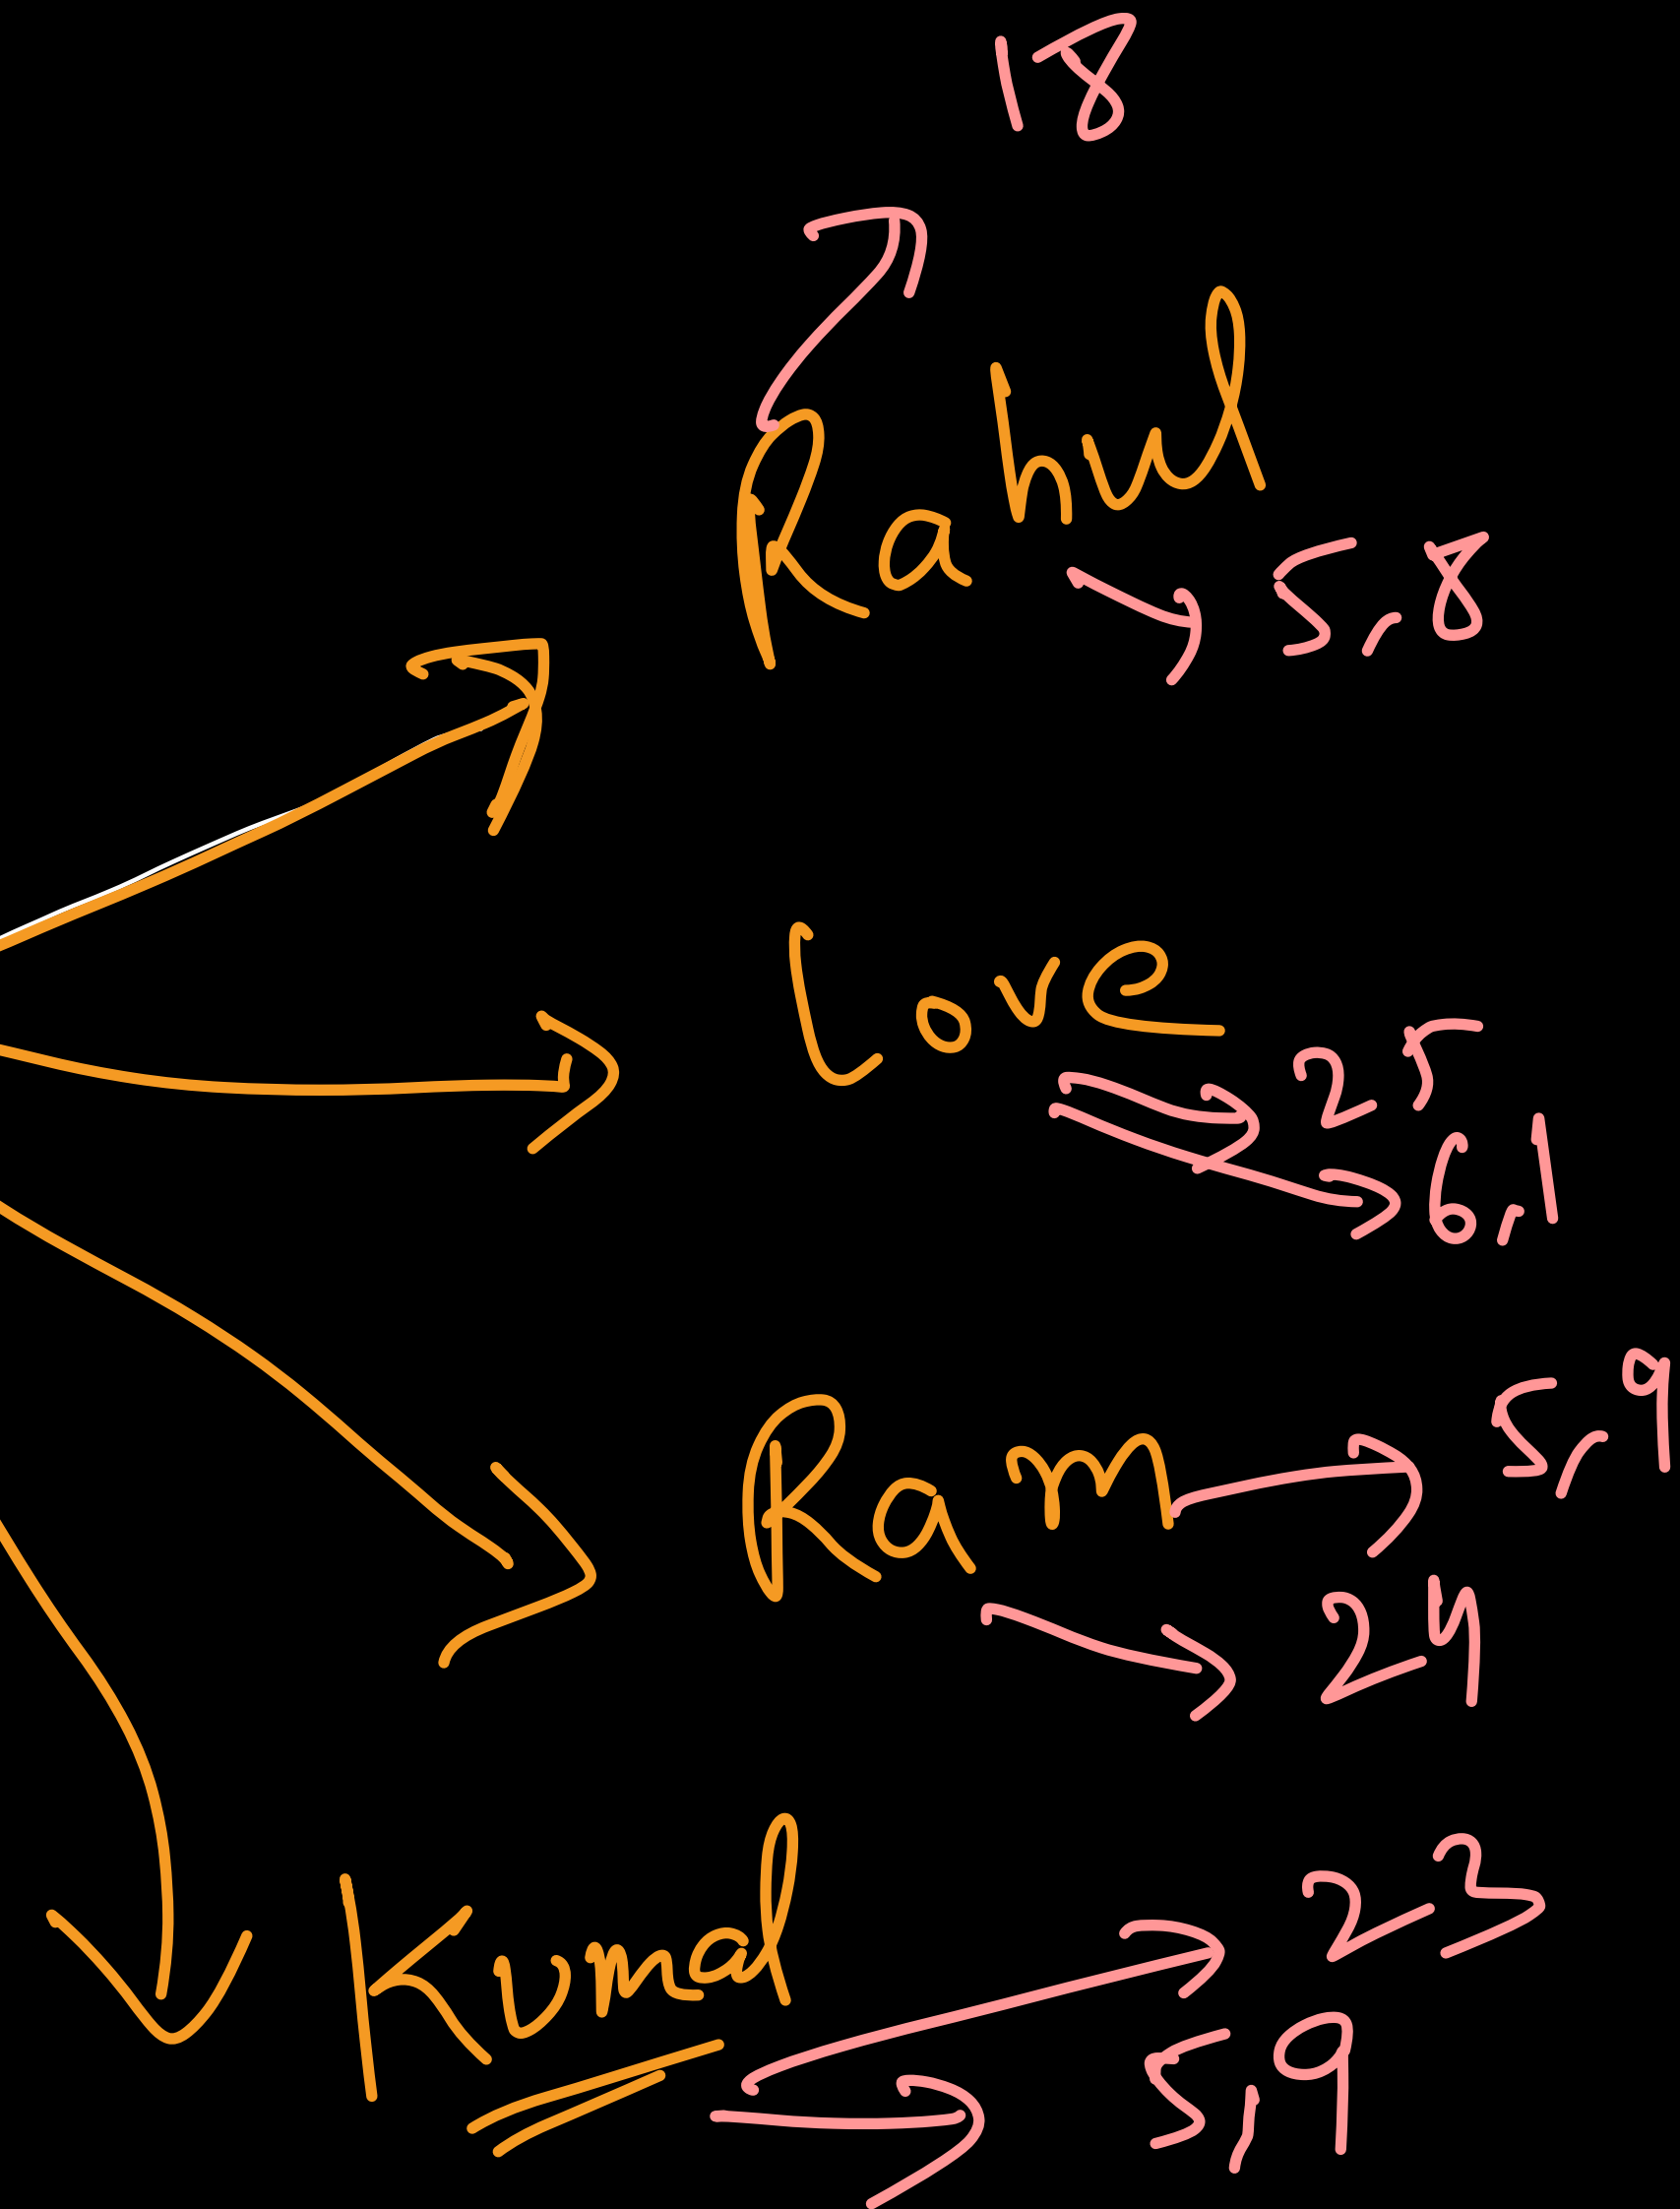 18
Rahul
5,8
Love
25
6,1
Ram
5,9
24
Kumal
23
5,9